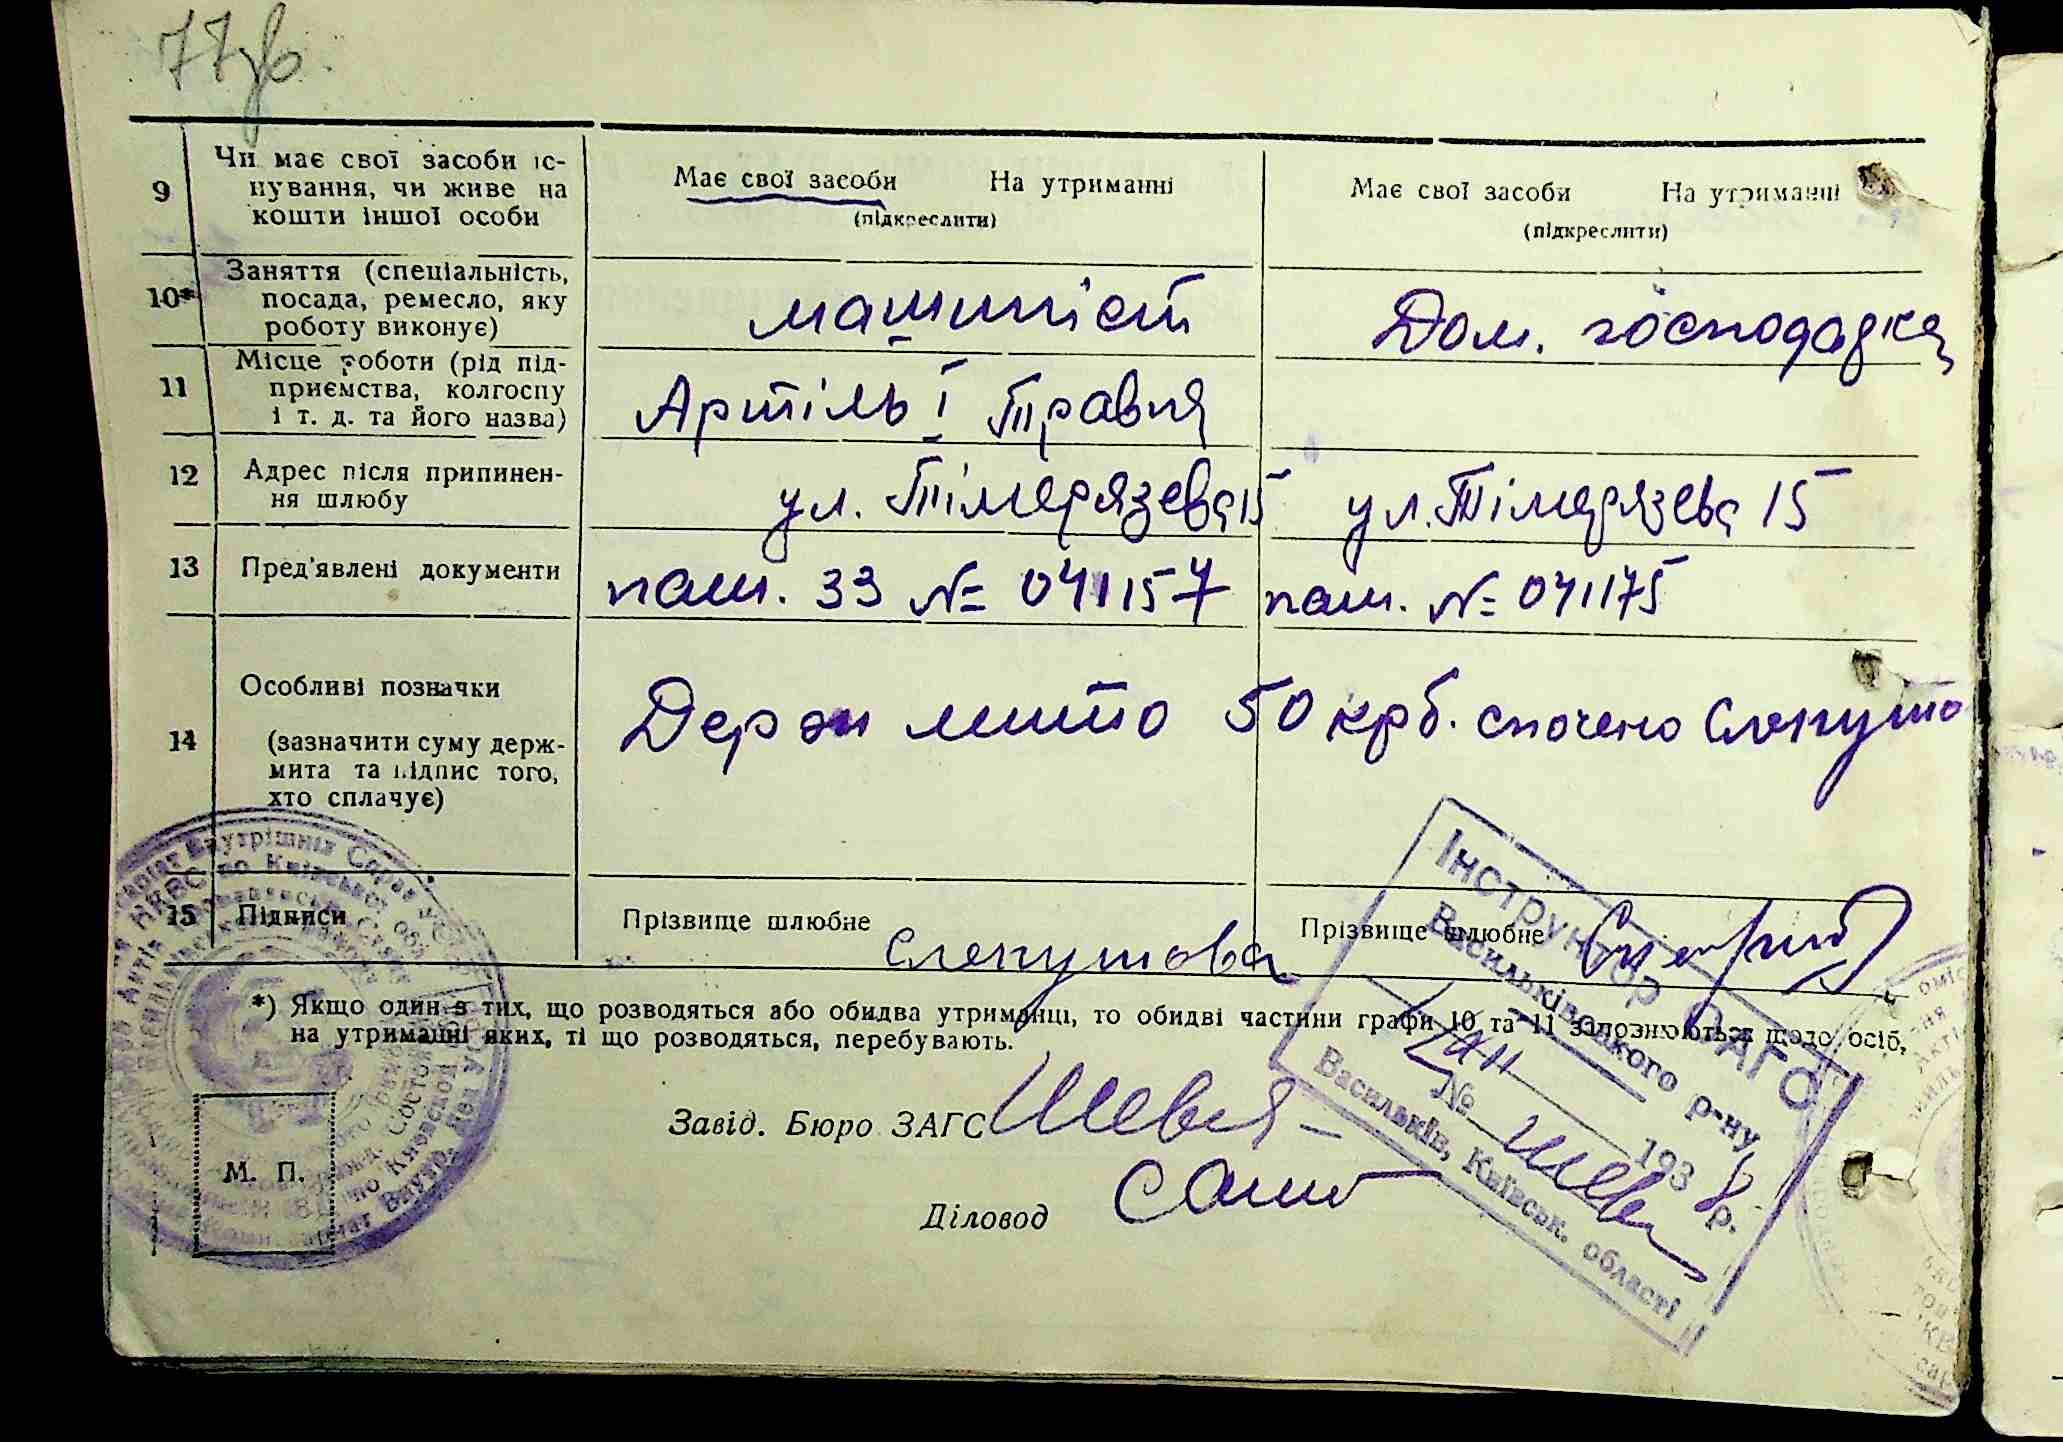 77зв.
9 Чи має свої засоби іс-
нування, чи живе на
кошти іншої особи
Має свої засоби На утриманні
(підкреслити)
Має свої засоби На утриманні
(підкреслити)
10* Заняття (спеціальність,
посада, ремесло, яку
роботу виконує)
машиніст
Дом. господарка
11 Місце роботи (рід під-
приємства, колгоспу
і т. д. та його назва)
Артіль І Травня
12 Адрес після припинен-
ня шлюбу
ул. Тімерязева 15
ул. Тімерязева 15
13 Пред'явлені документи
паш. 33 № 041157
паш. № 041175
14 Особливі позначки
(зазначити суму держ-
мита та підпис того,
хто сплачує)
Держ мито 50 крб. спочено
15 Підписи
Прізвище шлюбне
Прізвище шлюбне
*) Якщо один з тих, що розводяться або обидва утриманці, то обидві частини графи 10 та 11 заповнюються щодо осіб,
на утриманні яких, ті що розводяться, перебувають.
Завід. Бюро ЗАГС
Діловод
М. П.
Інструктор ЗАГС
Васильківського р-ну
№ 1938 р.
Васильків, Київськ. області